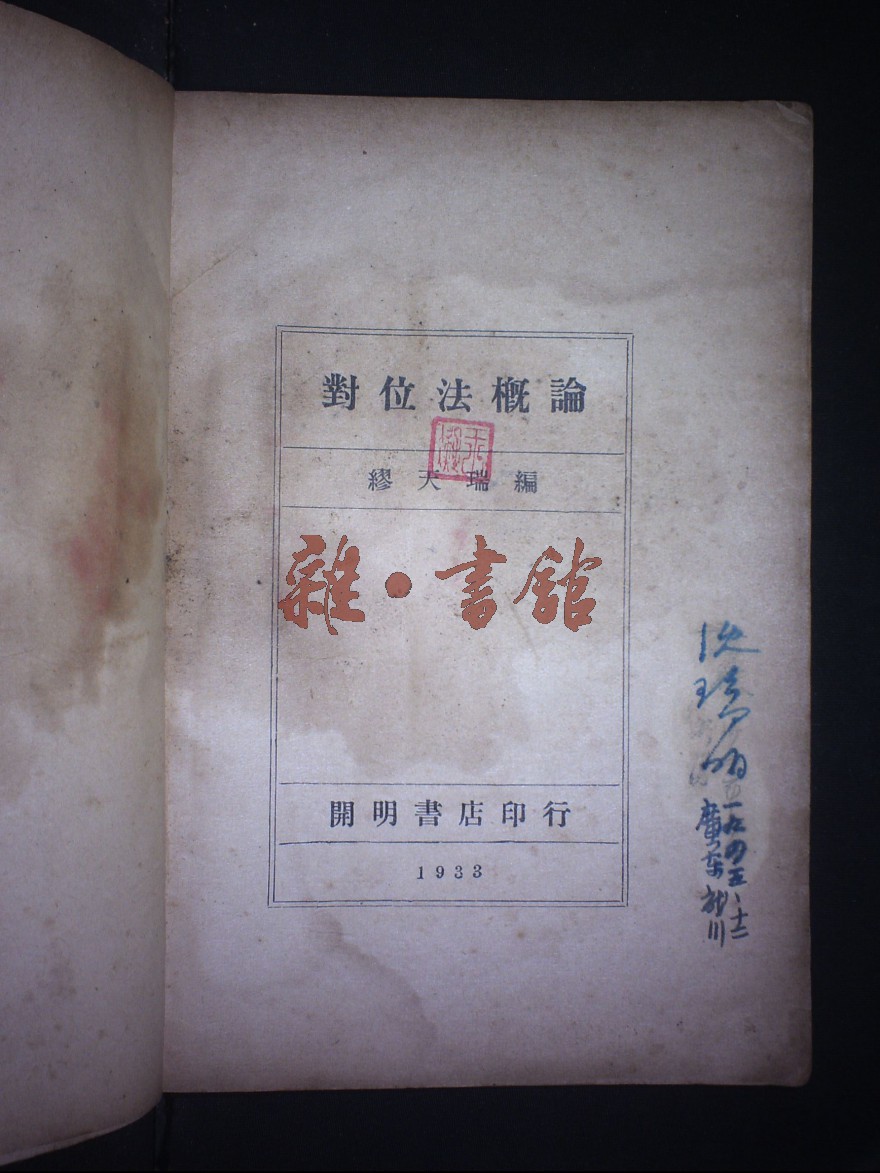 對位法概論
繆天瑞編
雜·書館
開明書店印行
1933
一九四五、十二
廣东龙川